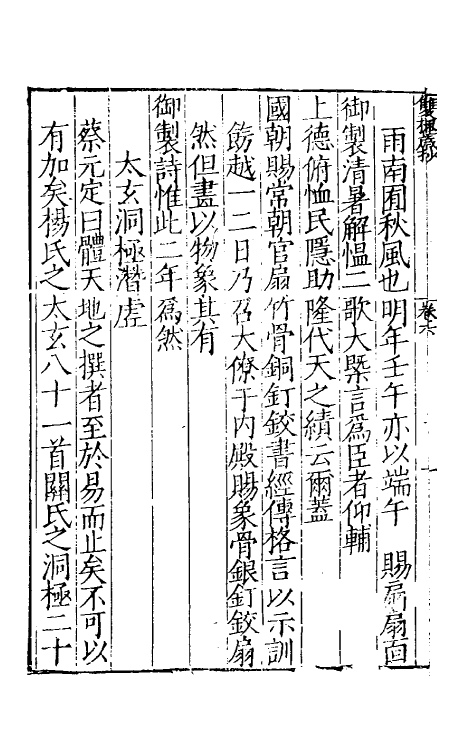 雨南囿秋風也明年壬午亦以端午　賜扇扇面
御製清暑解慍二歌大槩言爲臣者仰輔
上德俯恤民隱助隆代天之績云爾蓋
國朝賜常朝官扇竹骨銅釘鉸書經傳格言以示訓
餝越一二日乃召大僚于內殿賜象骨銀釘鉸扇
然但畫以物象其有
御製詩惟此二年爲然
太玄洞極潛虛
蔡元定曰體天地之撰者至於易而止矣不可以
有加矣楊氏之太玄八十一首關氏之洞極二十
卷六